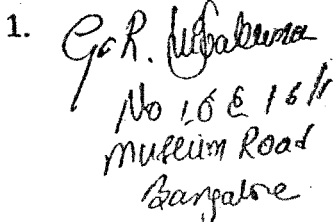 1. G R.
No 16 & 16/1
Museum Road
Bangalore